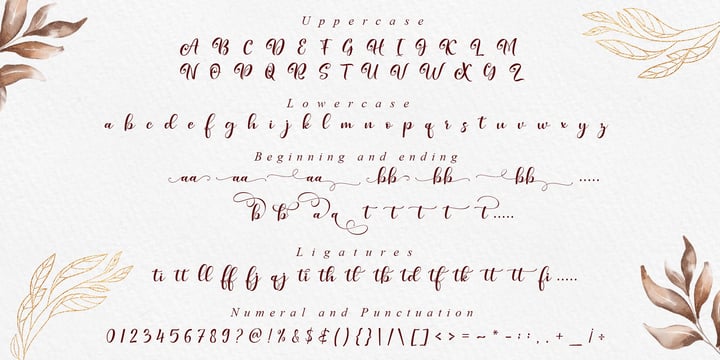 Uppercase
A B C D E F G H I J K L M
N O P Q R S T U V W X Y Z
Lowercase
a b c d e f g h i j k l m n o p q r s t u v w x y z
Beginning and ending
aa aa aa bb bb bb .....
b b a a t t t t t .....
Ligatures
ti tt ll ff fj aj ti th tl tb td tf tk tt tt fi .....
Numeral and Punctuation
0 1 2 3 4 5 6 7 8 9 ? @ ! % & $ ₤ ( ) { } | / \ [ ] < > = ~ * - : ; , . + _ / ÷